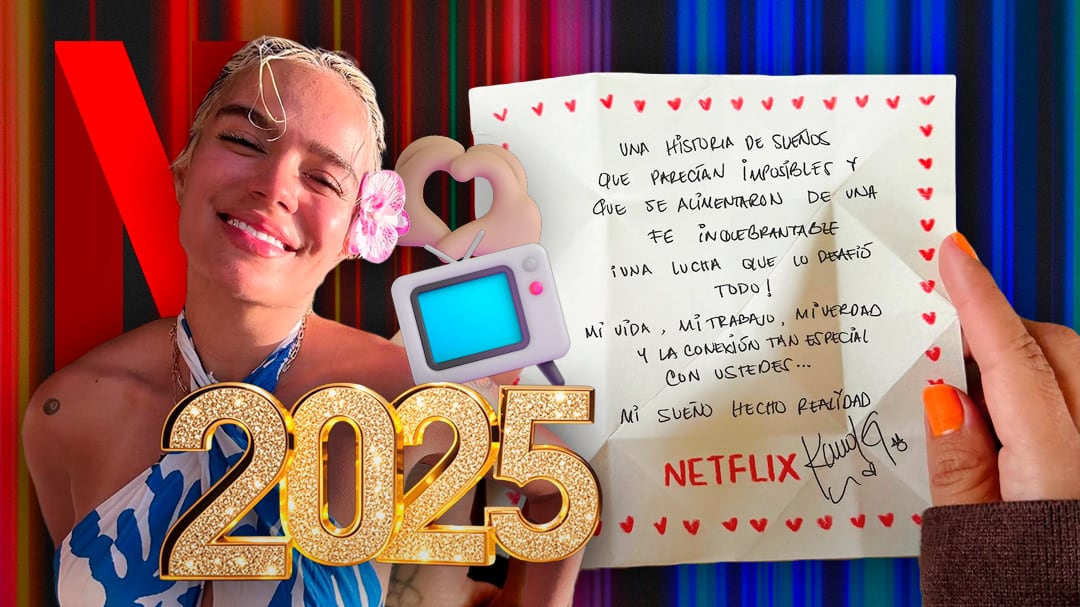 UNA HISTORIA DE SUEÑOS
QUE PARECÍAN IMPOSIBLES Y
QUE SE ALIMENTARON DE UNA
FE INQUEBRANTABLE
¡UNA LUCHA QUE LO DESAFIÓ
TODO!
MI VIDA, MI TRABAJO, MI VERDAD
Y LA CONEXIÓN TAN ESPECIAL
CON USTEDES...
MI SUEÑO HECHO REALIDAD
NETFLIX Karol G
2025